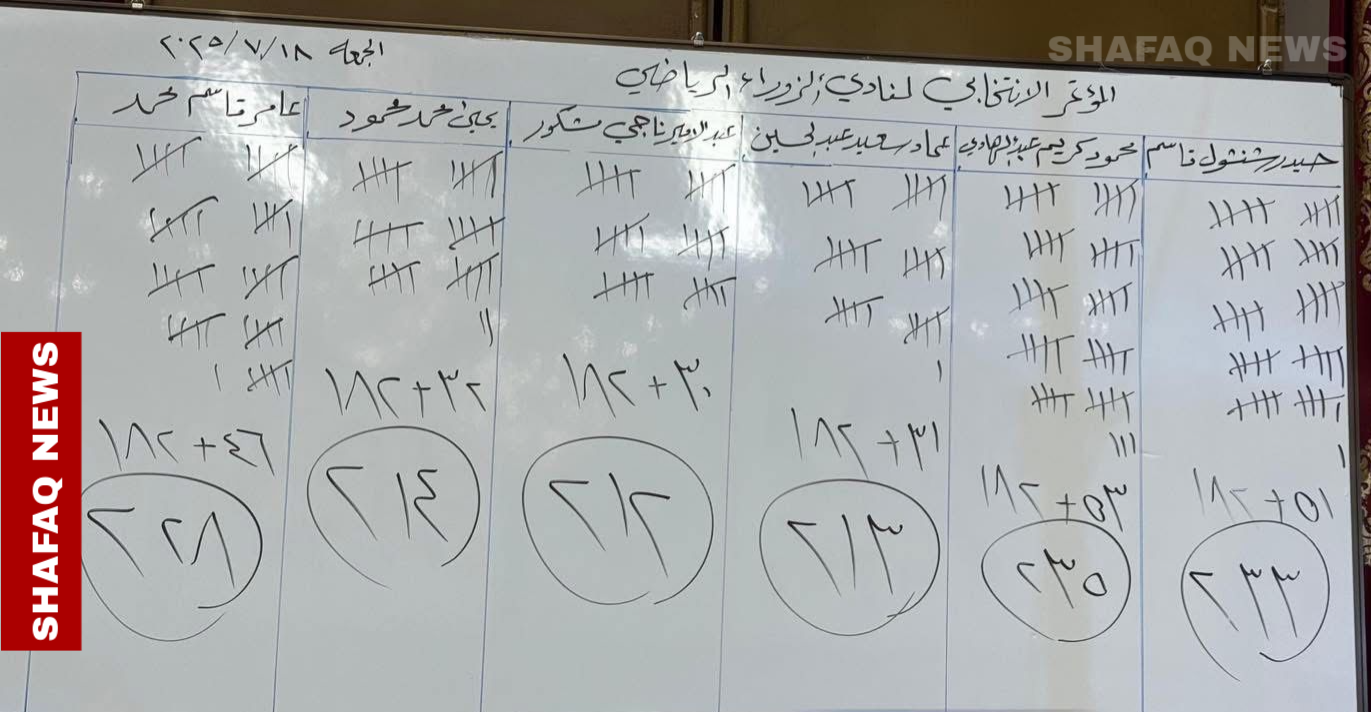 SHAFAQ NEWS
الجمعه ٢٠٢٥/٧/١٨
المؤتمر الانتخابي لنادي الزوراء الرياضي
حيدر شنشول قاسم
محمود كريم عبد الهادي
عماد سعيد عبد الحسين
عبد الامير ناجي مشكور
يحيى محمد محمود
عامر قاسم محمد
١٨٢ + ٥١
٢٣٣
١٨٢ + ٥٣
٢٣٥
١٨٢ + ٣١
٢١٣
١٨٢ + ٣٠
٢١٢
١٨٢ + ٣٢
٢١٤
١٨٢ + ٤٦
٢٢٨
SHAFAQ NEWS